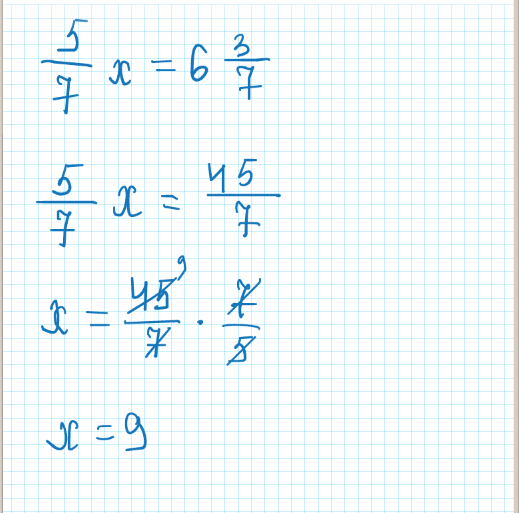 5/7 x = 6 3/7
5/7 x = 45/7
x = 45/7 · 7/5 9
x = 9